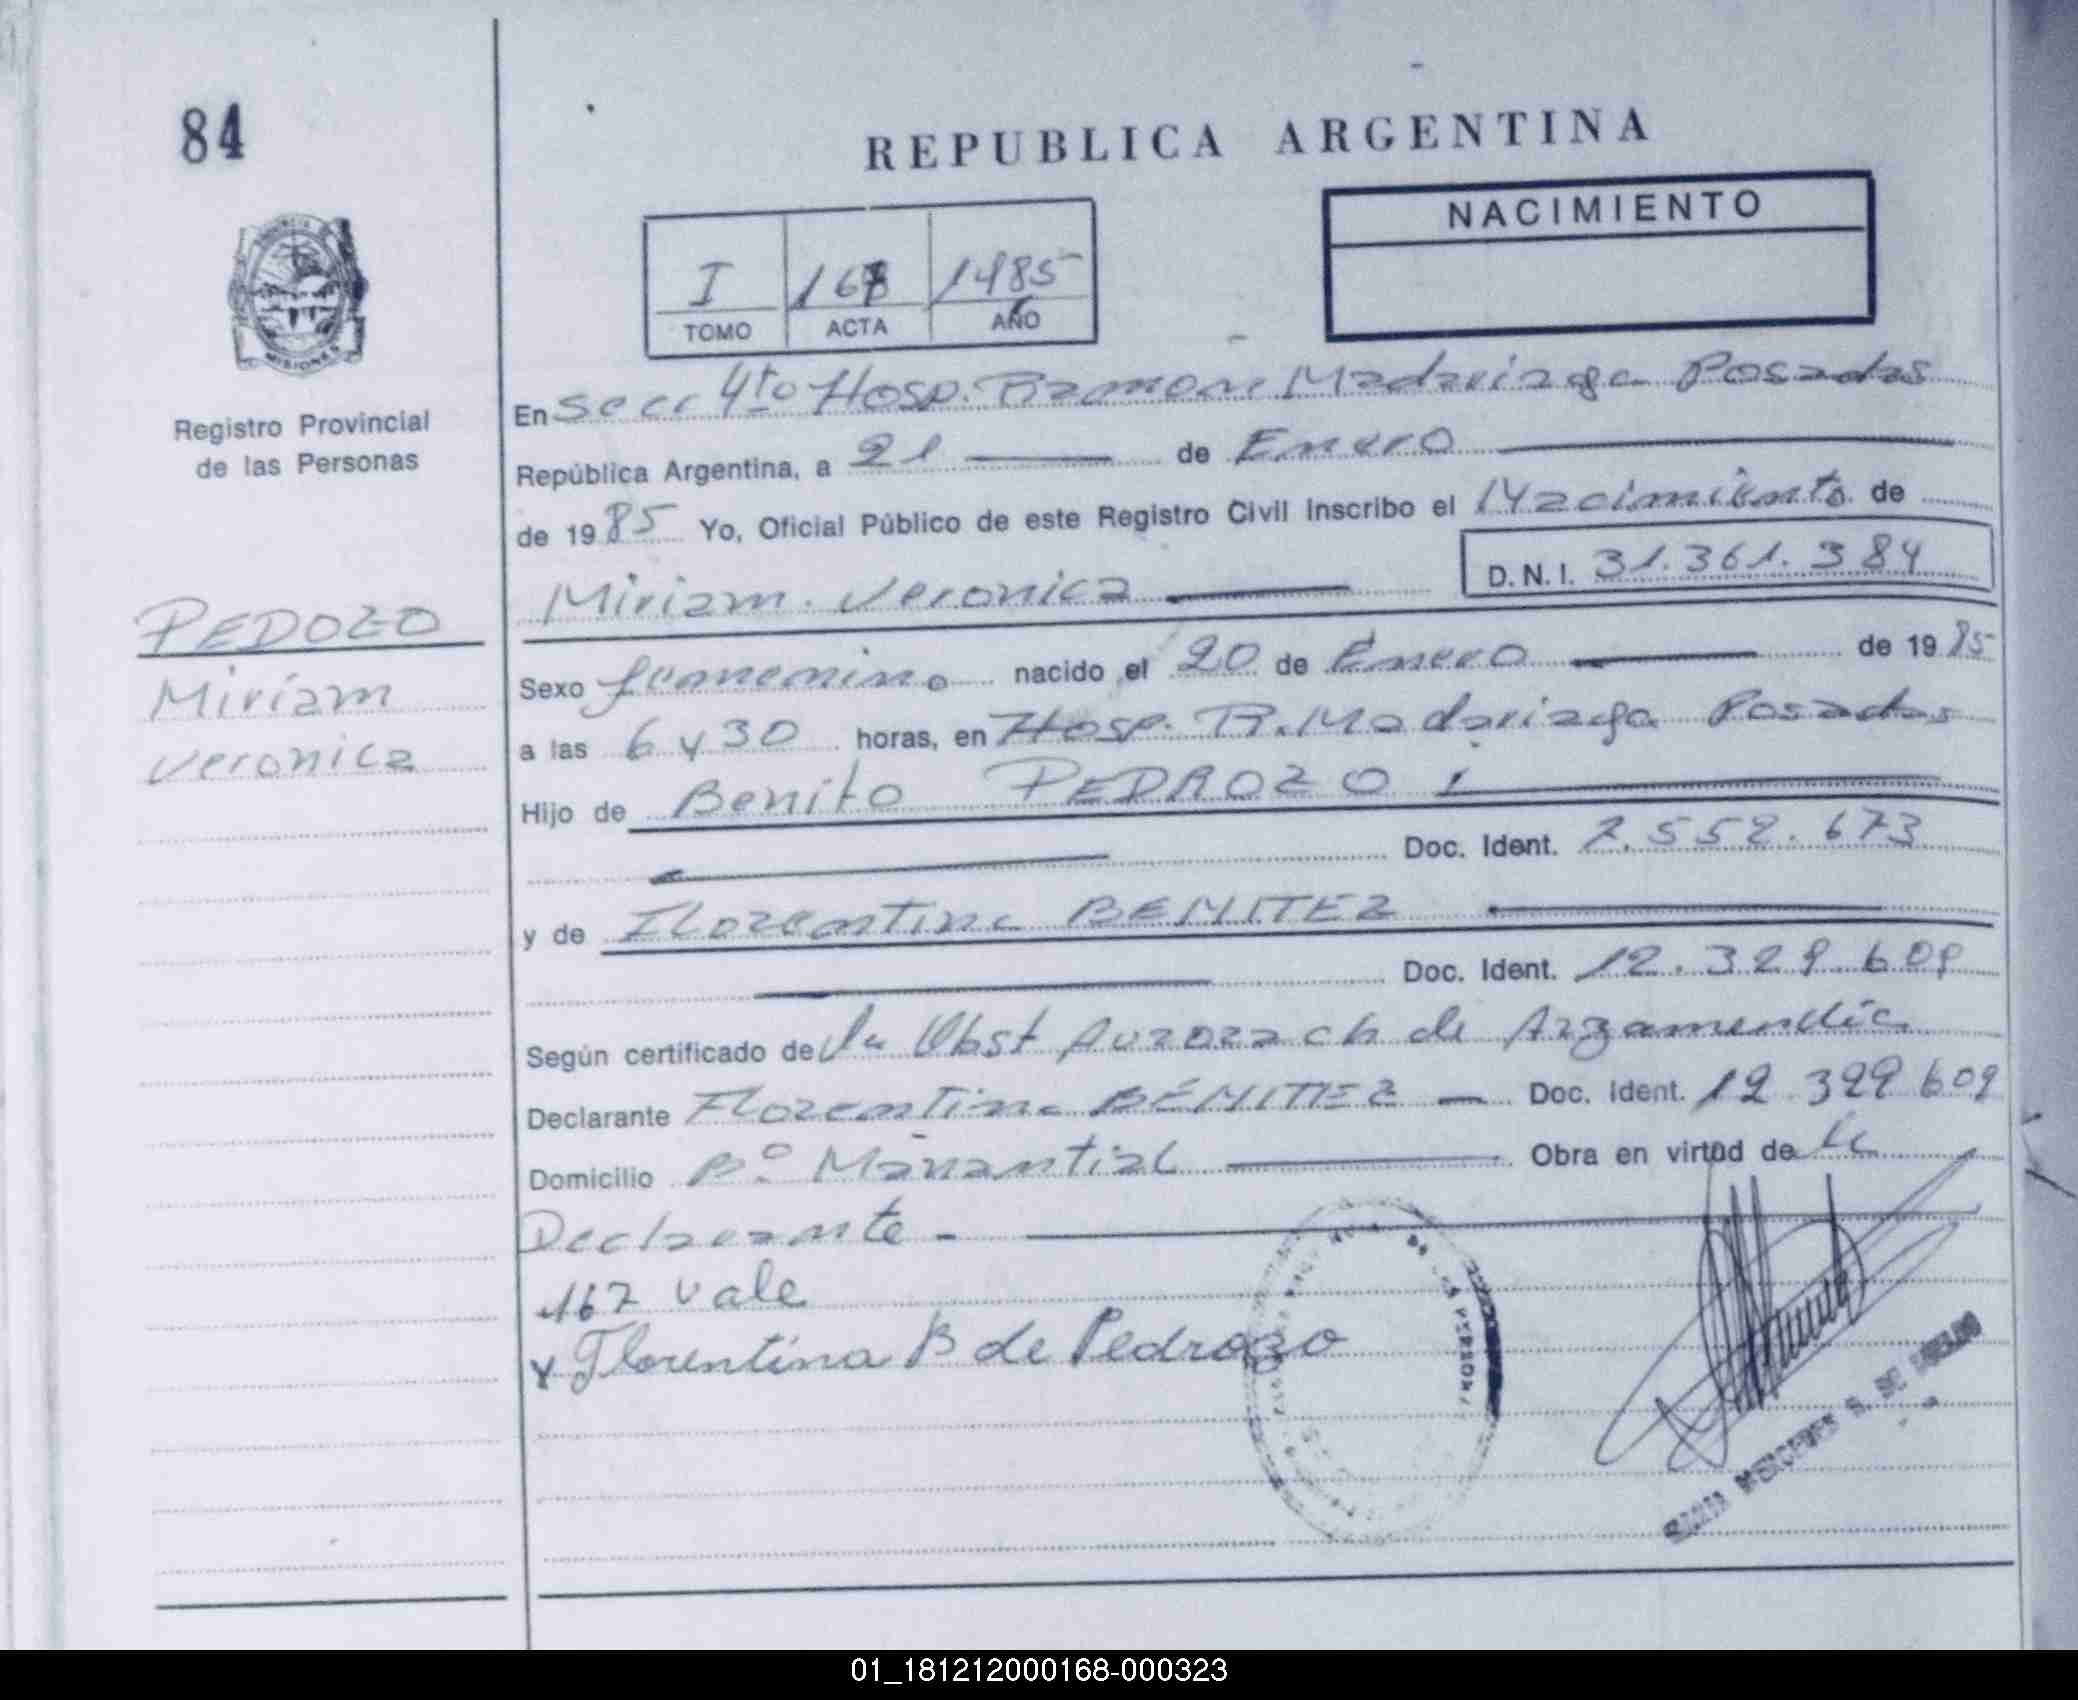 84
REPUBLICA ARGENTINA
NACIMIENTO
I 167 1985
TOMO ACTA AÑO
PROVINCIA DE
MISIONES
Registro Provincial
de las Personas
En Secc 4to Hosp. Ramon Madariaga Posadas
República Argentina, a 21 de Enero
de 1985 Yo, Oficial Público de este Registro Civil Inscribo el Nacimiento de
D.N.I. 31.361.384
Miriam Veronica
PEDOZO
Miriam
Veronica
Sexo femenino nacido el 20 de Enero de 1985
a las 6 y 30 horas, en Hosp. R. Madariaga Posadas
Hijo de Benito PEDROZO
Doc. Ident. 7.552.673
y de Florentina BENITEZ
Doc. Ident. 12.329.609
Según certificado de la Obst de Arzamendia
Declarante Florentina BENITEZ Doc. Ident. 12.329.609
Domicilio Bº Manantial Obra en virtud de la
Declarante -
167 vale
x Florentina B de Pedrozo
MERCEDES
01_181212000168-000323